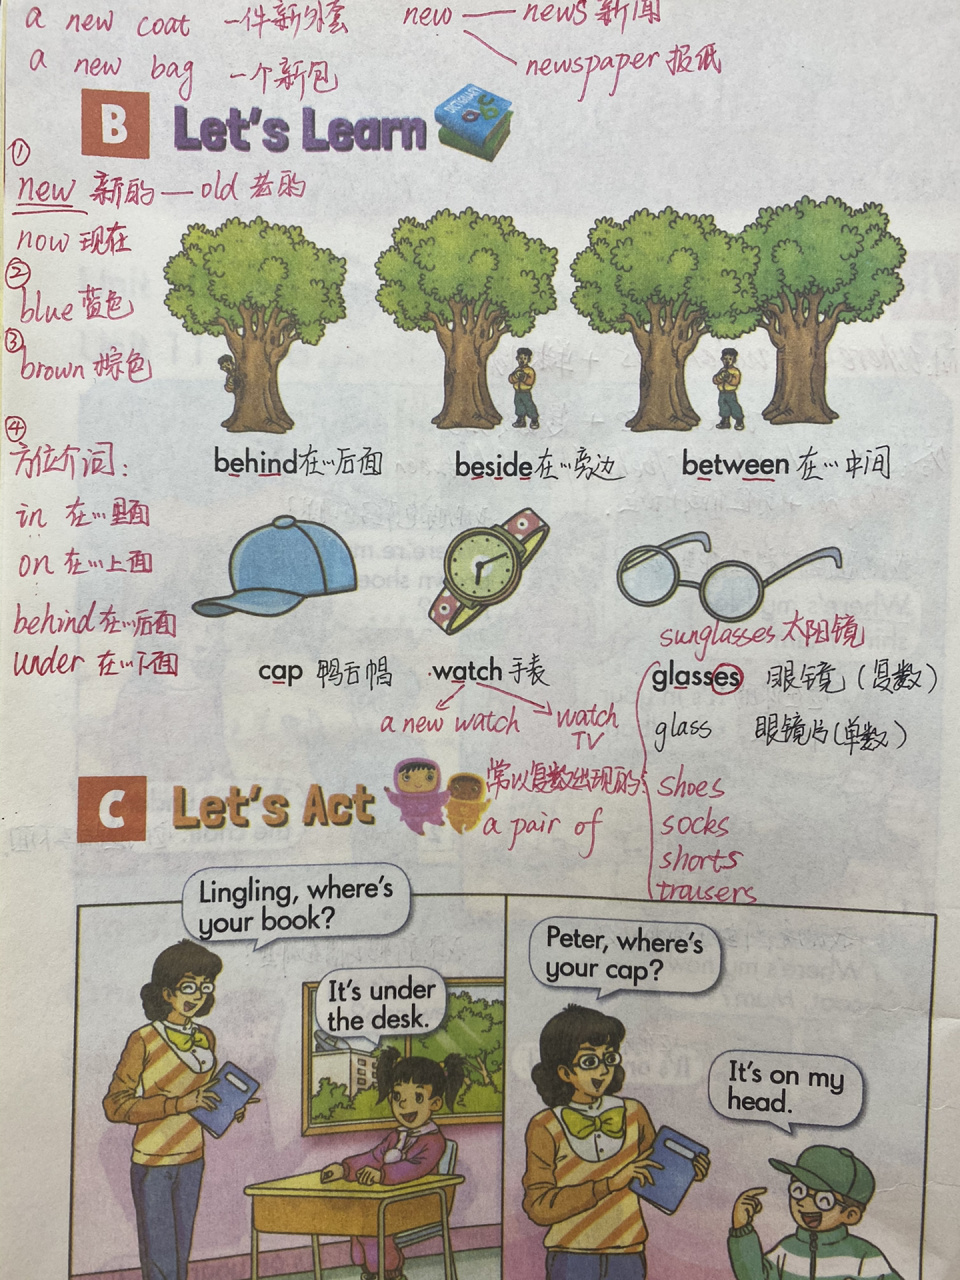 a new coat 一件新外套
new — news 新闻
a new bag 一个新包
newspaper 报纸
B Let's Learn
DICTIONARY
①
new 新的 — old 老的
now 现在
②
blue 蓝色
③
brown 棕色
④
方位介词:
in 在…里面
on 在…上面
behind 在…后面
under 在…下面
behind 在…后面
beside 在…旁边
between 在…中间
sunglasses 太阳镜
cap 鸭舌帽
watch 手表
glasses 眼镜(复数)
a new watch
watch TV
glass 眼镜片(单数)
常以复数出现的:
a pair of
shoes
socks
shorts
trousers
C Let's Act
Lingling, where's
your book?
It's under
the desk.
Peter, where's
your cap?
It's on my
head.